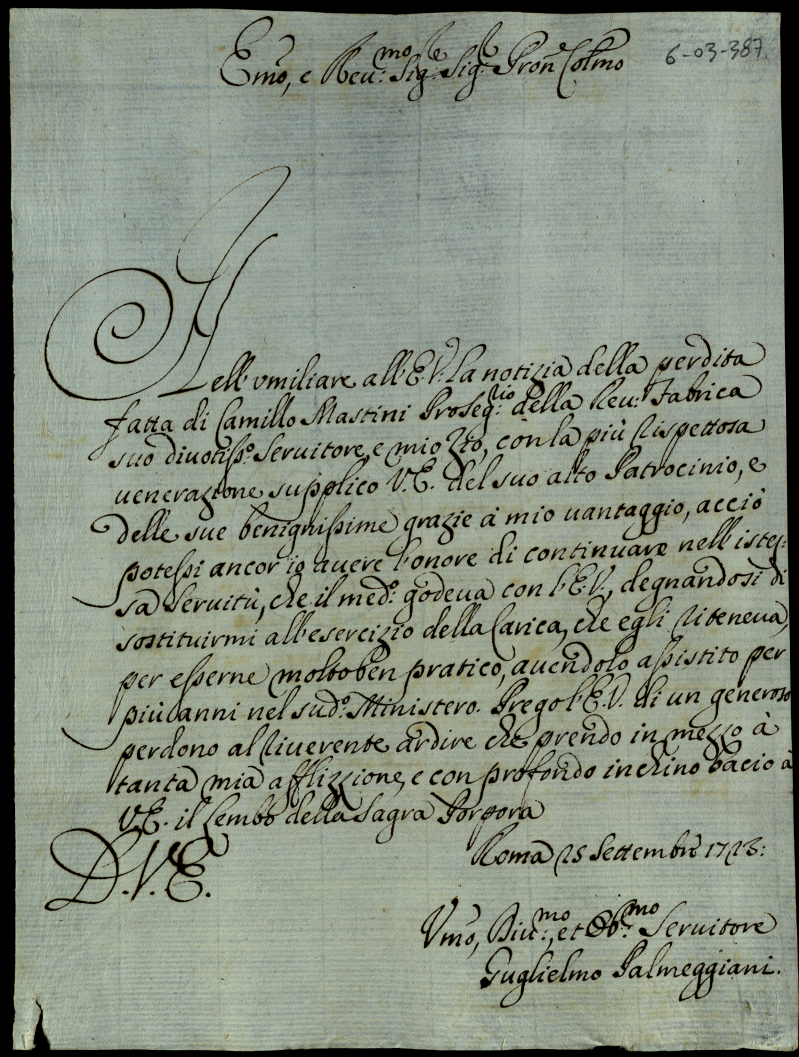 Emo, e Reu:mo Sig:re Sig:re Prone Colmo
6-03-387
Nell'vmiliare all'E.V. la notizia della perdita
fatta di Camillo Mastini ProSeg:rio della Reu: Fabrica
suo diuotiss:o Seruitore, e mio Zio, con la più rispettosa
uenerazione supplico V.E. del suo alto Patrocinio, e
delle sue benignissime grazie à mio uantaggio, acciò
potessi ancor io auere l'onore di continuare nell'istes:
sa Seruitù, che il med:o godeua con l'E.V., degnandosi di
sostituirmi all'esercizio della Carica, che egli riteneua,
per esserne molto ben pratico, auendolo assistito per
più anni nel sud:o Ministero. Prego l'E.V. di un generoso
perdono al riuerente ardire che prendo in mezzo à
tanta mia afflizzione, e con profondo inchino bacio à
V.E. il Lembo della Sagra Porpora
D.V.E.
Roma 25 Settembre 1723:
Vmo, Diu:mo, et Obb:mo Seruitore
Guglielmo Palmeggiani.